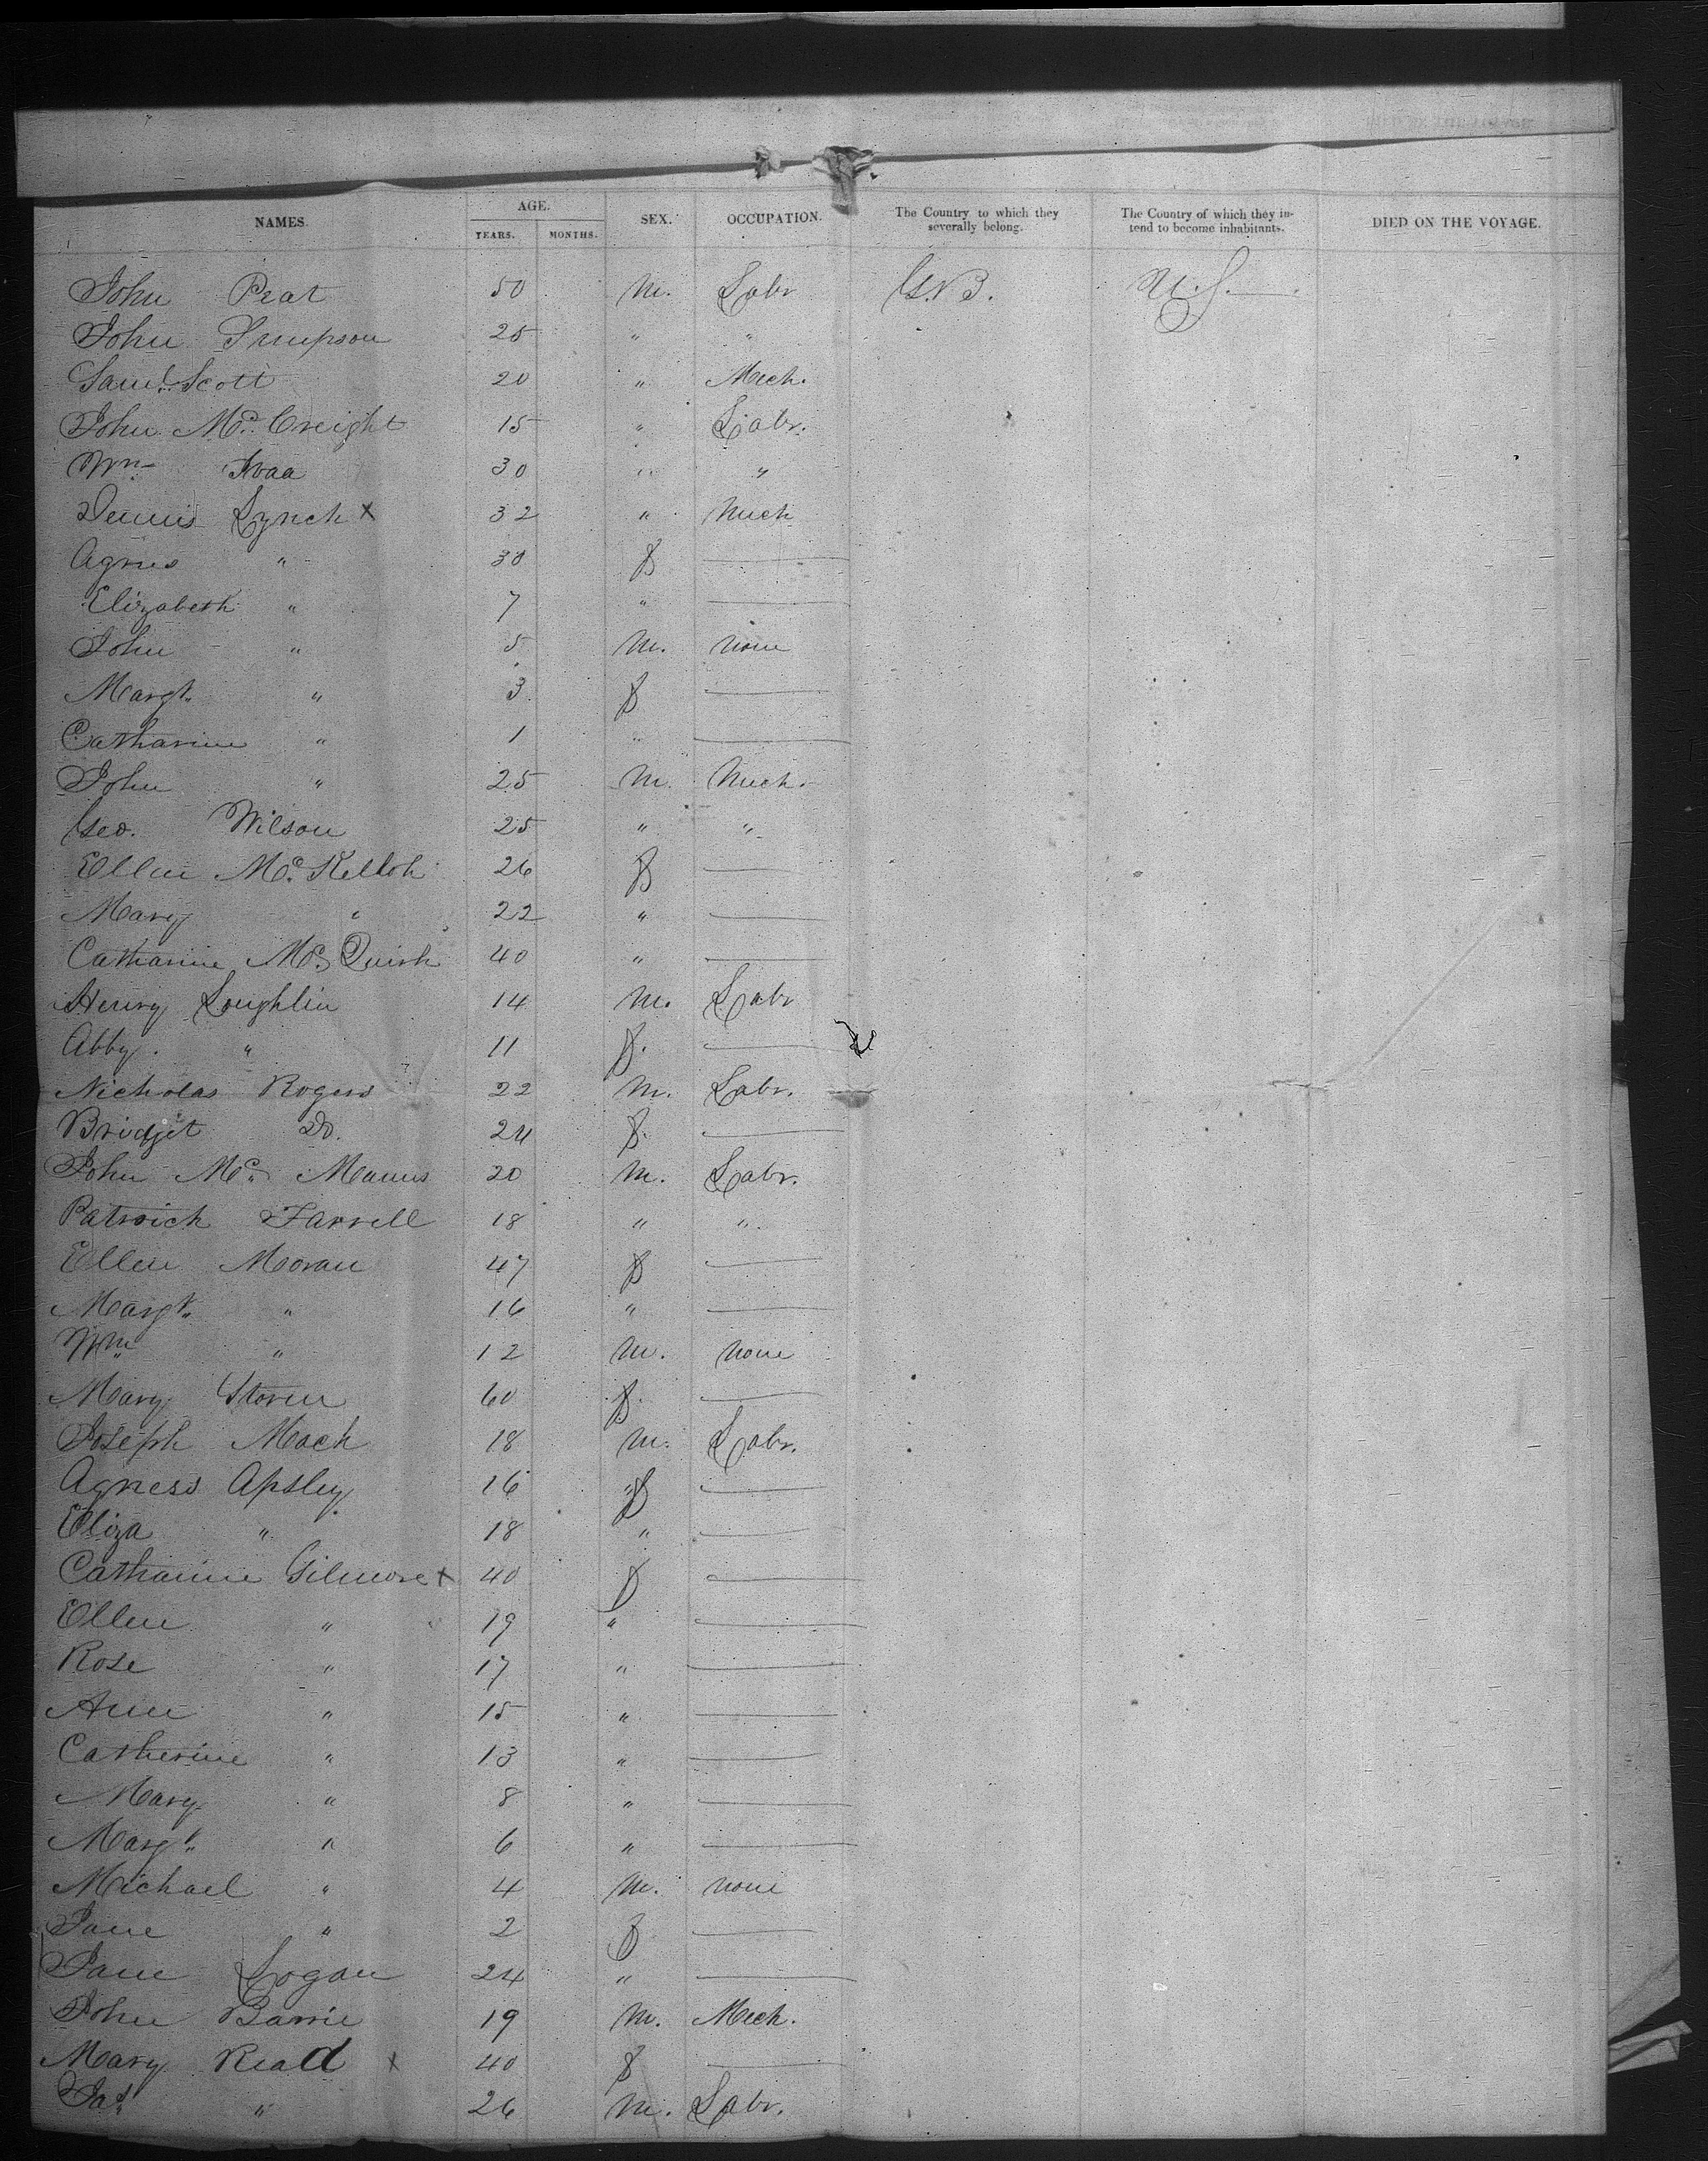 NAMES. AGE. SEX. OCCUPATION. The Country to which they severally belong. The Country of which they intend to become inhabitants. DIED ON THE VOYAGE.
YEARS. MONTHS.
John Peat 50 M. Labr G.B. U.S.
John Simpson 25 " "
Saml. Scott 20 " Mech.
John Mc. Creight 15 " Labr.
Wm. 30 " "
Dennis Lynch x 32 " Mech
Agnes " 30 f —
Elizabeth " 7 " —
John " 5 M. none
Margt. " 3 f —
Catharine " 1 " —
John " 25 M. Mech.
Geo. Wilson 25 " "
Ellen Mc. 26 f —
Mary " 22 " —
Catharine Mc. Quirk 40 " —
Henry Loughlin 14 M. Labr
Abby. " 11 f. —
Nicholas Rogers 22 M. Labr.
Bridget Do. 24 f. —
John Mc. Manus 20 M. Labr.
Patrick Farrell 18 " "
Ellen Moran 47 f —
Margt. " 16 " —
Wm " 12 M. none
Mary Storen 60 f. —
Joseph Mack 18 M. Labr.
Agness Apsley 16 f —
Eliza " 18 " —
Catharine Gilmore x 40 f —
Ellen " 19 " —
Rose " 17 " —
Ann " 15 " —
Catherine " 13 " —
Mary " 8 " —
Margt. " 6 " —
Michael " 4 M. none
Jane " 2 f —
Jane Logan 24 " —
John Barrie 19 M. Mech.
Mary Read x 40 f —
Jas. " 26 M. Labr.